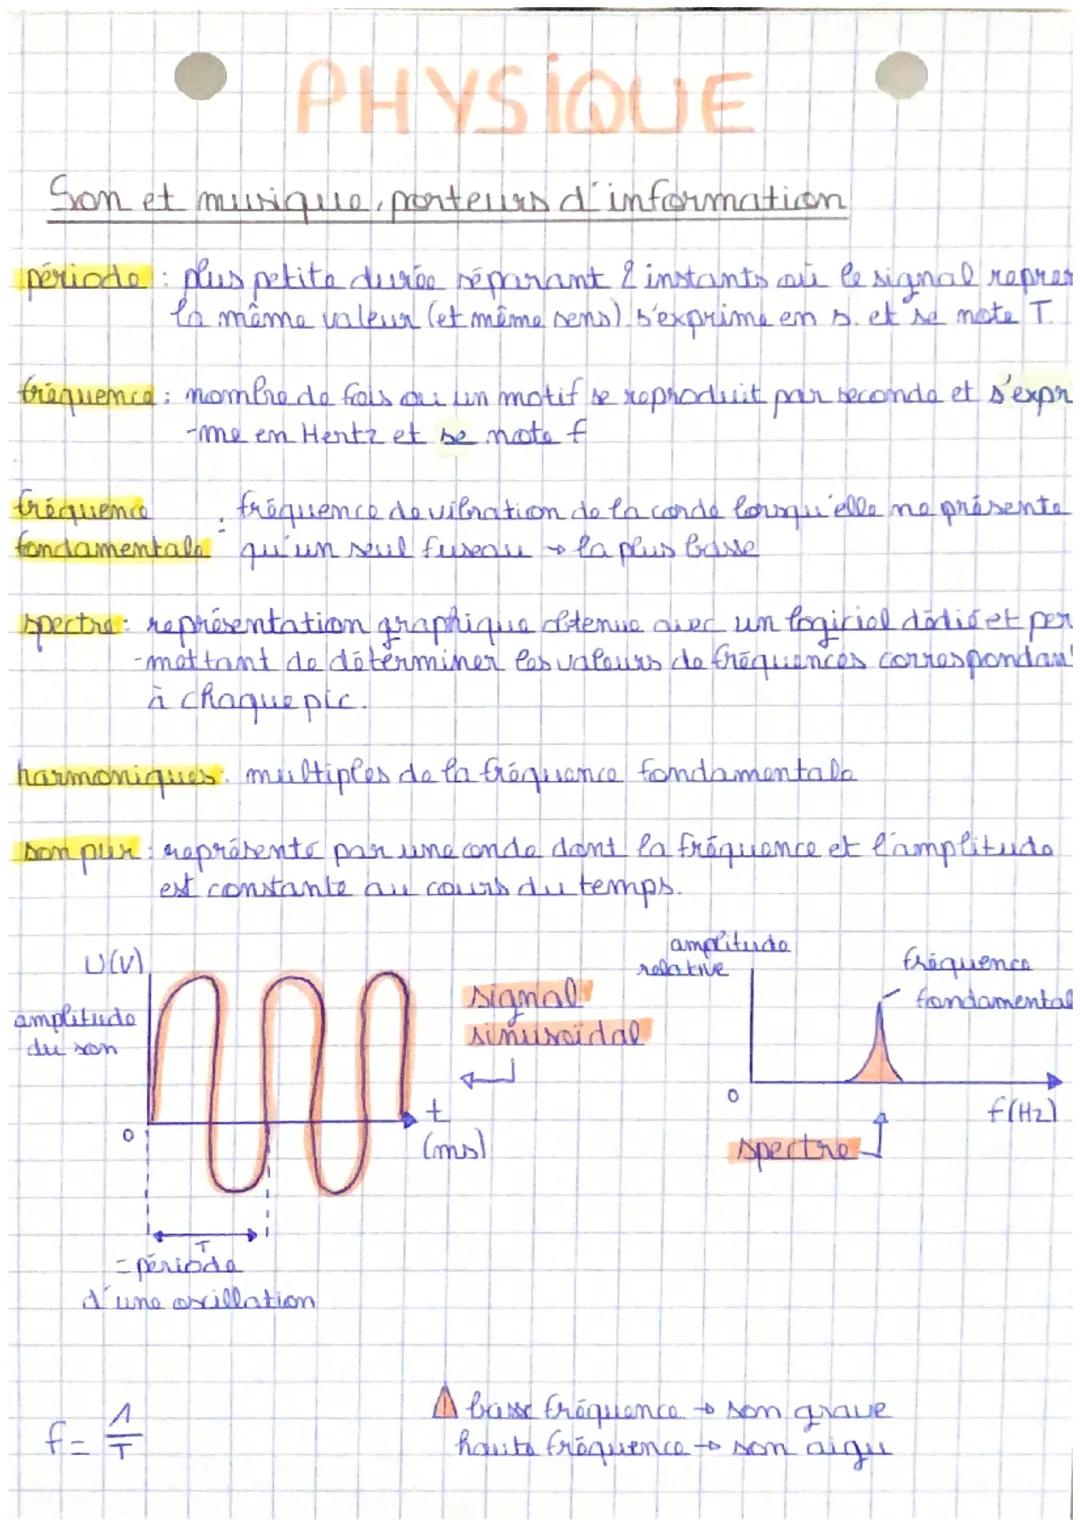 PHYSIQUE
Son et musique, porteurs d'information
période : plus petite durée séparant 2 instants où le signal repren
la même valeur (et même sens). s'exprime en s. et se note T.
fréquence : nombre de fois ou un motif se reproduit par seconde et s'expri
-me en Hertz et se note f
fréquence
fondamentale : fréquence de vibration de la corde lorsqu'elle ne présente
qu'un seul fuseau → la plus basse
spectre : représentation graphique obtenue avec un logiciel dédié et per
-mettant de déterminer les valeurs de fréquences correspondant
à chaque pic.
harmoniques : multiples de la fréquence fondamentale
son pur : représenté par une onde dont la fréquence et l'amplitude
est constante au cours du temps.
U(V)
amplitude
du son
0
t
(ms)
T
= période
d'une oscillation
signal
sinusoïdal
amplitude
relative
fréquence
fondamental
0
f(Hz)
spectre
f = 1/T
⚠ basse fréquence → son grave
haute fréquence → son aigu